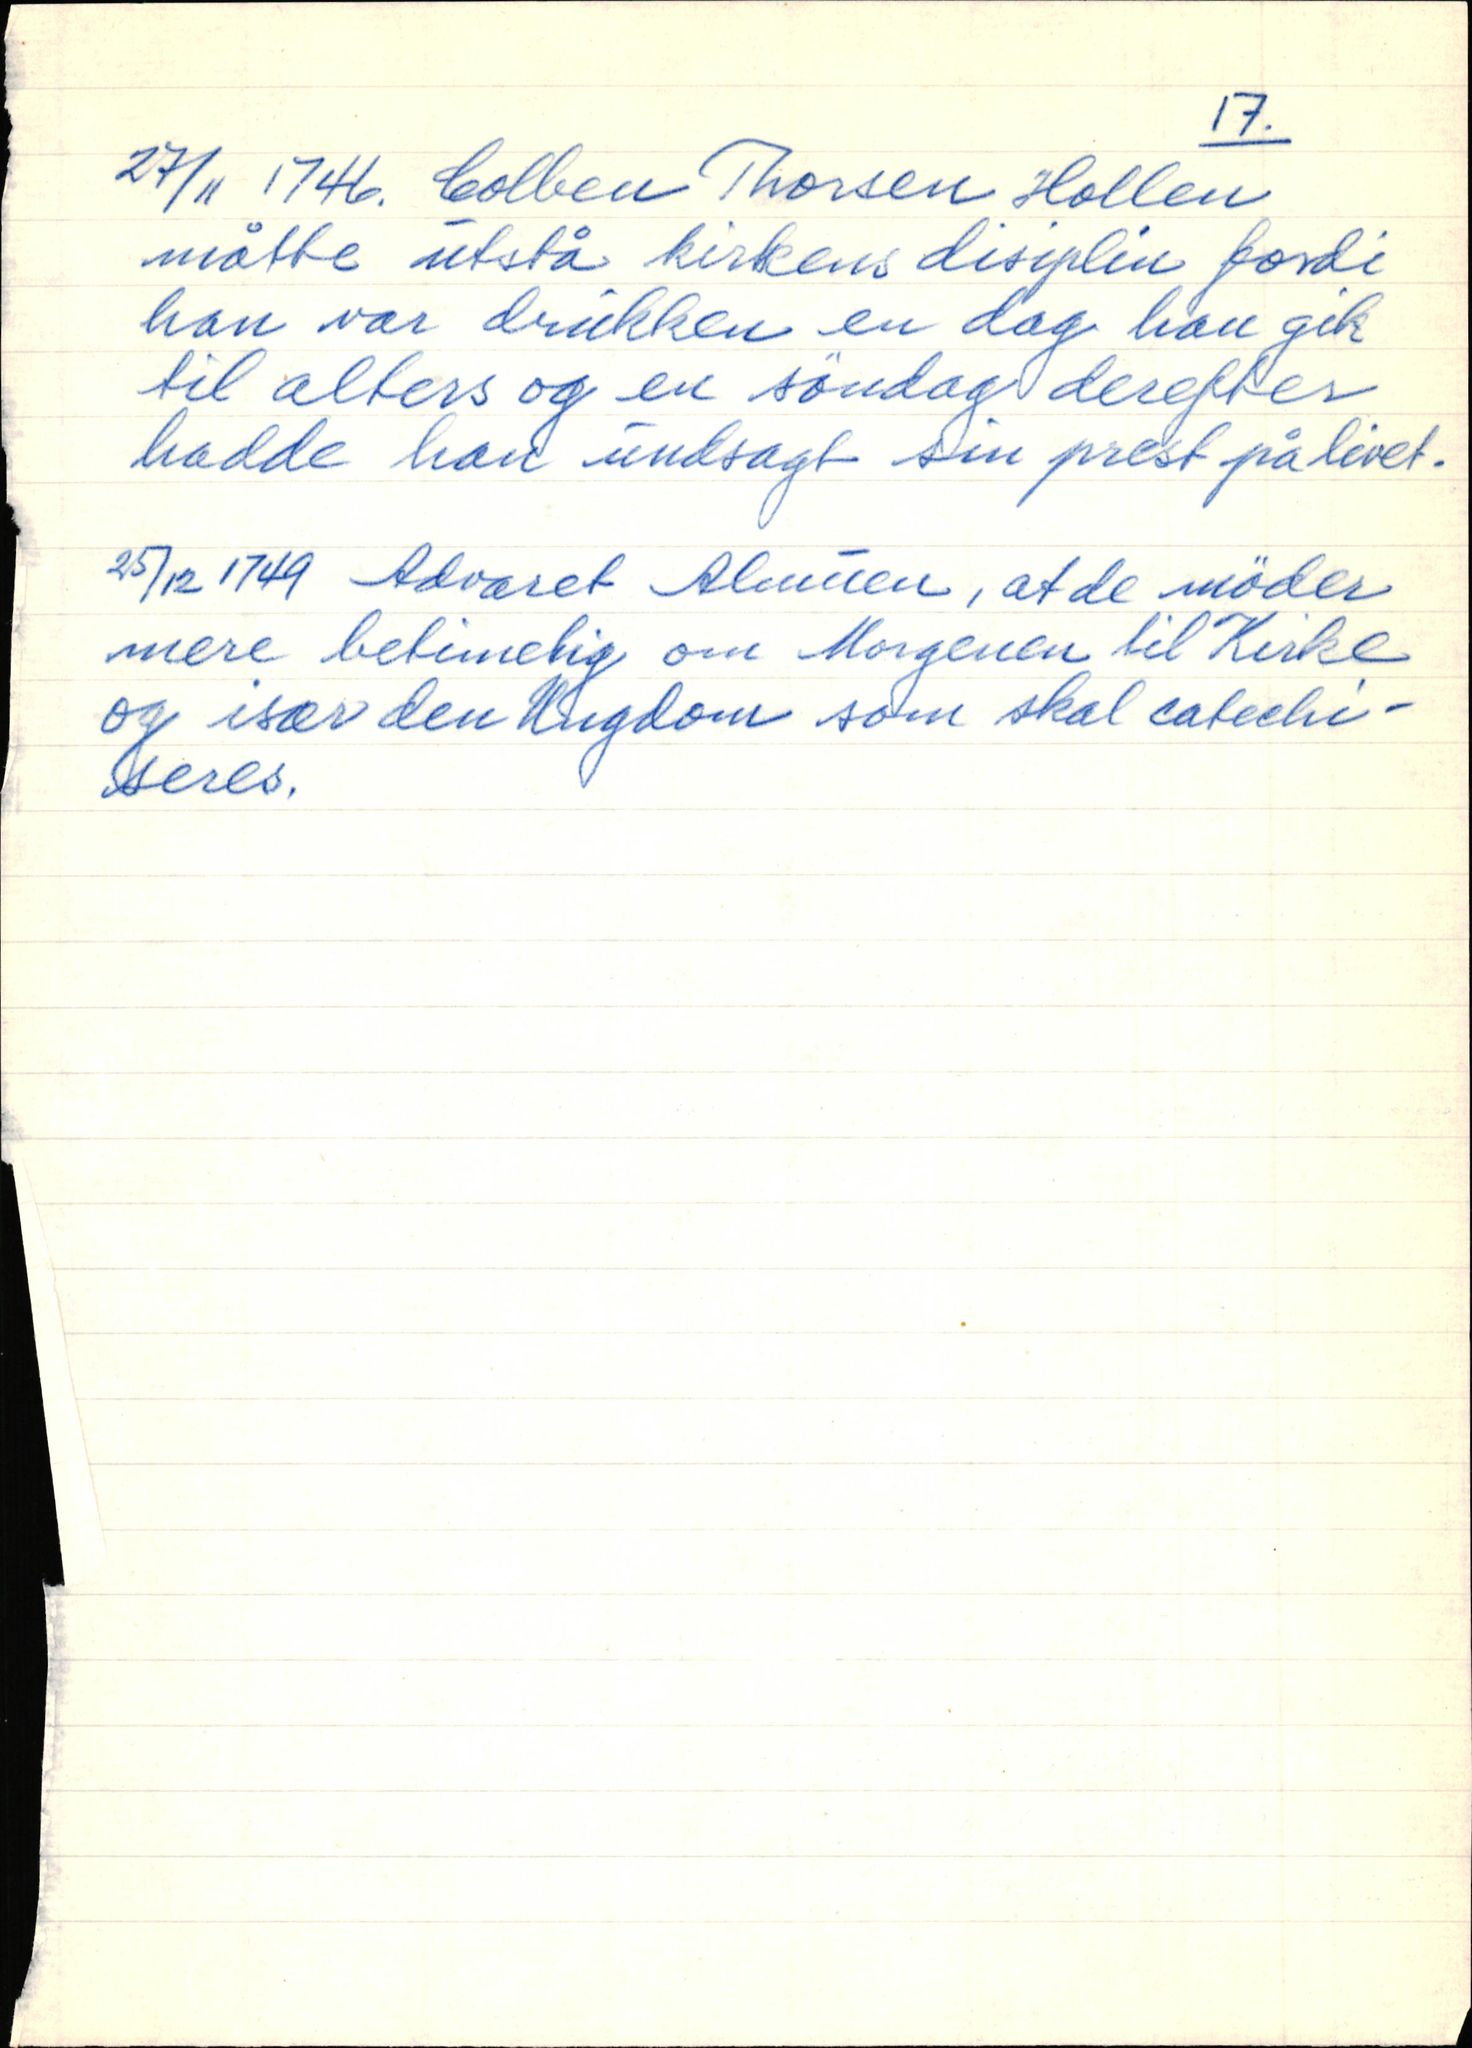 17.
27/11 1746. Colben Thorsen Hollen
måtte utstå kirkens disiplin fordi
han var drukken en dag han gik
til alters og en söndag derefter
hadde han undsagt sin prest på livet.
25/12 1749 Advaret Almuen, at de möder
mere betimelig om Morgenen til Kirke
og især den Ungdom som skal catechi-
seres.